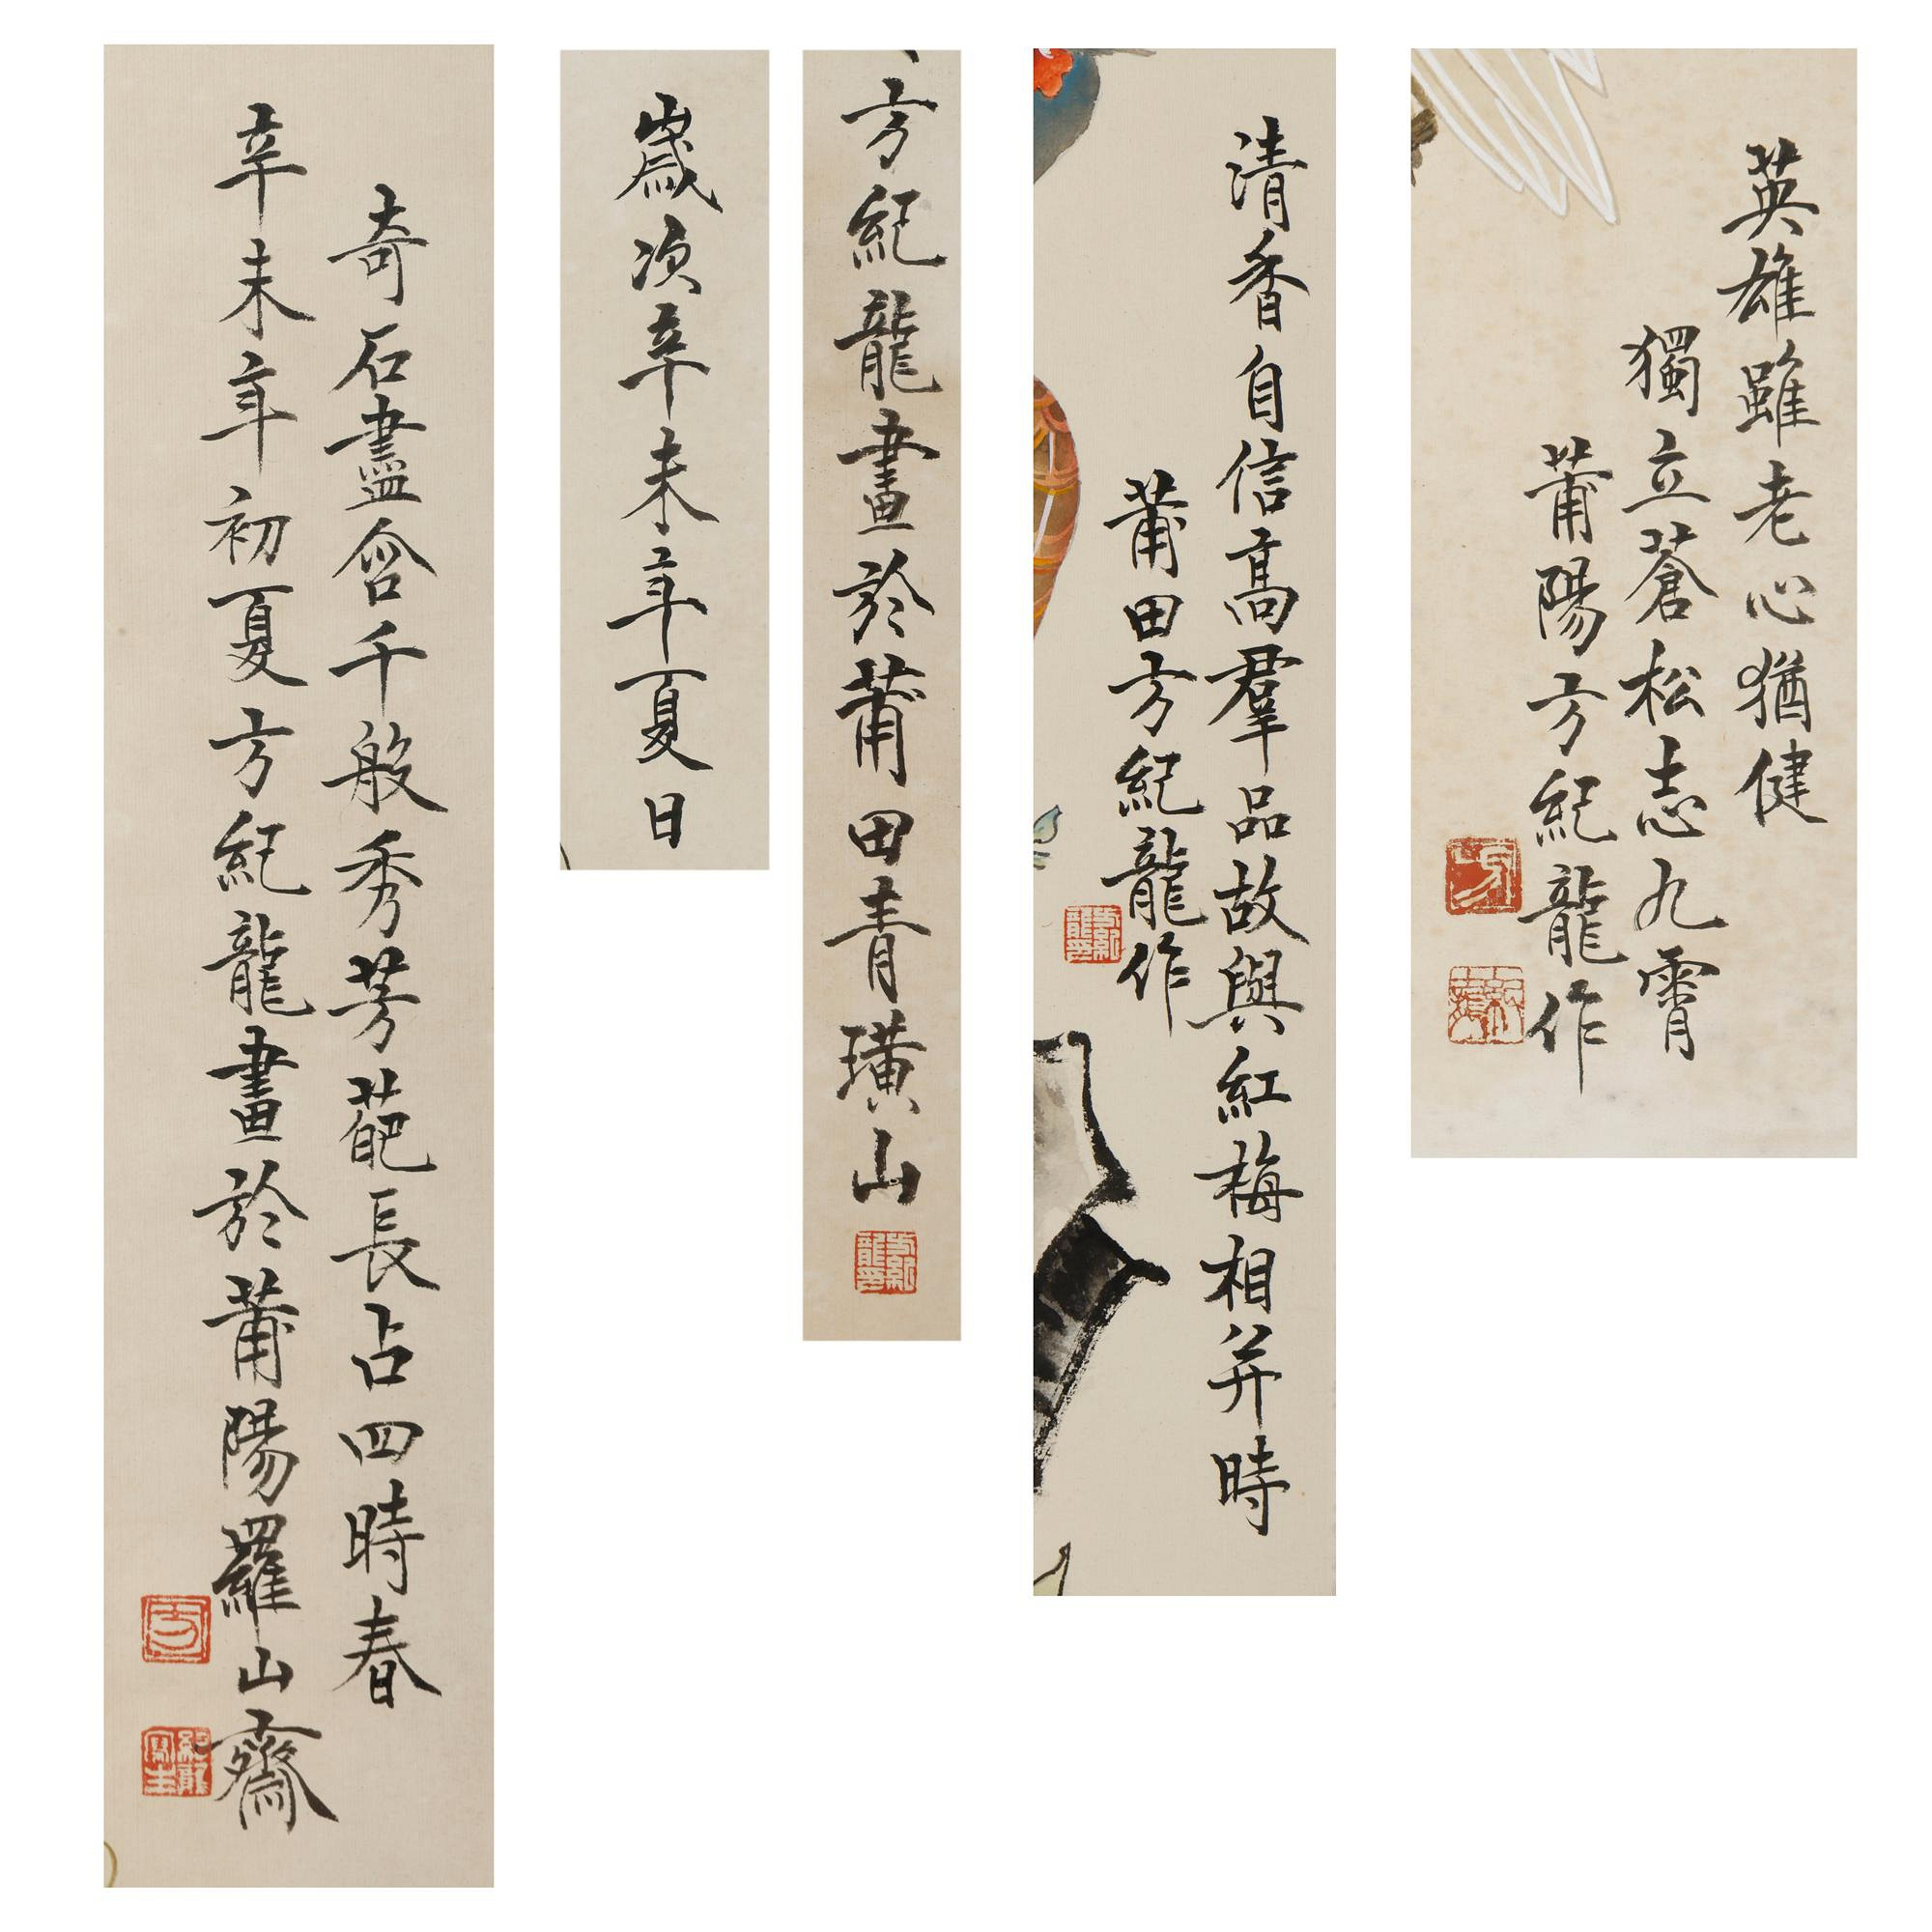 英雄雖老心猶健
獨立蒼松志九霄
莆陽方紀龍作
清香自信高羣品故與紅梅相并時
莆田方紀龍作
方紀龍畫於莆田青璜山
歲次辛未年夏日
奇石盡含千般秀芳葩長占四時春
辛未年初夏方紀龍畫於莆陽羅山齋